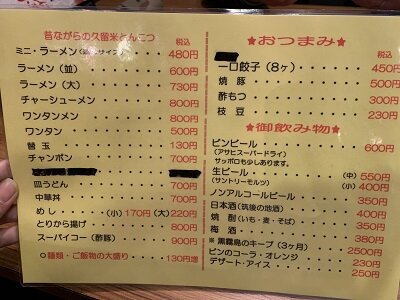 昔ながらの久留米とんこつ 税込
ミニ・ラーメン 480円
ラーメン (並) 600円
ラーメン (大) 730円
チャーシューメン 800円
ワンタンメン 800円
ワンタン 500円
替玉 130円
チャンポン 700円
700円
皿うどん 700円
中華丼 700円
めし (小) 170円 (大) 220円
とりから揚げ 800円
スーパイコー (酢豚) 900円
○麺類・ご飯物の大盛り 130円増
★おつまみ★ 税込
一口餃子 (8ヶ) 450円
焼豚 500円
酢もつ 300円
枝豆 230円
★御飲み物★ 税込
ビンビール 600円
(アサヒスーパードライ)
サッポロも少しあります。
生ビール (中) 550円
(サントリーモルツ) (小) 400円
ノンアルコールビール 350円
日本酒 (筑後の地酒) 400円
焼酎 (いも・麦・そば) 350円
梅酒 380円
※黒霧島のキープ (3ヶ月) 2500円
ビンのコーラ・オレンジ 230円
デザート・アイス 250円